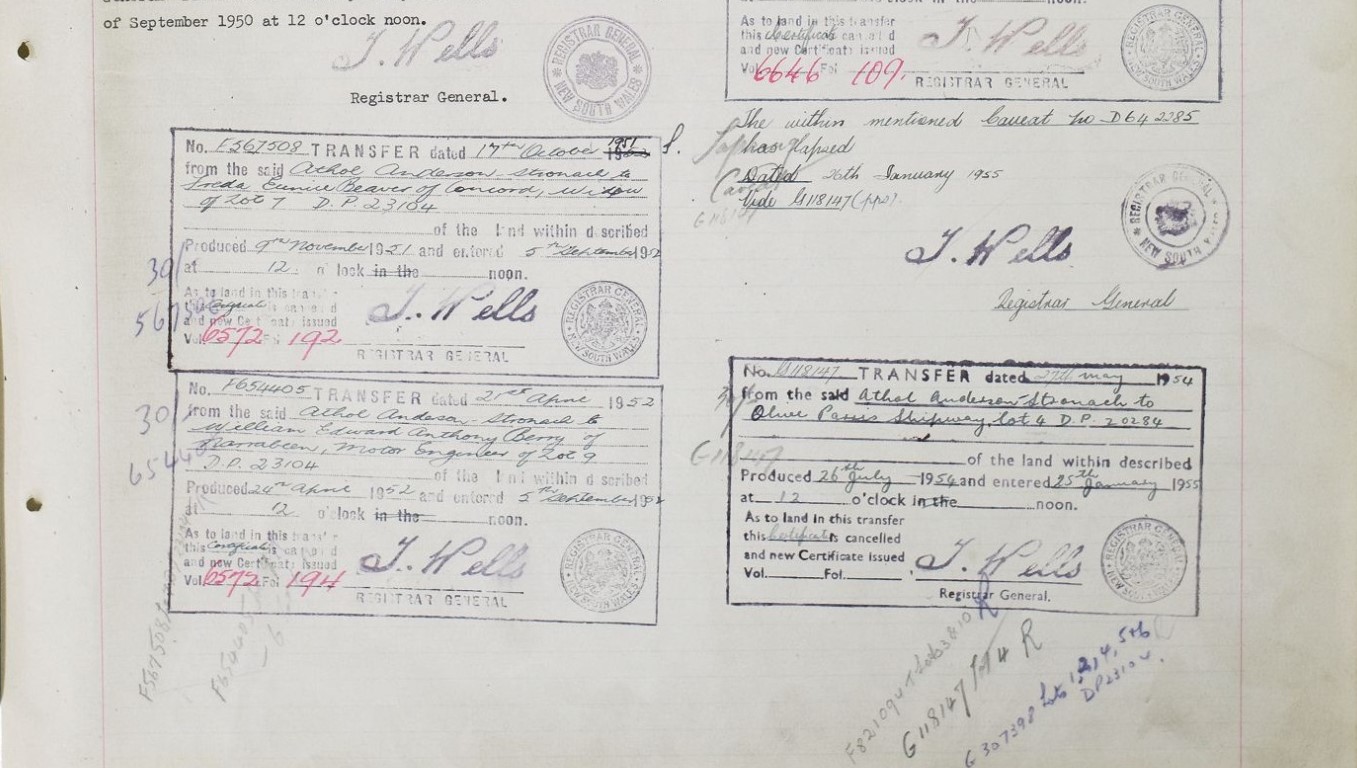 of September 1950 at 12 o'clock noon.
J. Wells
Registrar General.
REGISTRAR GENERAL
NEW SOUTH WALES
No. F567508 TRANSFER dated 17th October 1951
from the said Athol Anderson Stronach to
Freda Eunice Beaver of Concord, Widow
of Lot 7 D.P. 23104
of the land within described
Produced 9th November 1951 and entered 5th September 1952
at 12 o'clock in the noon.
As to land in this transfer
this Certificate is cancelled
and new Certificate issued
Vol. 6572 Fol 192
J. Wells
REGISTRAR GENERAL
REGISTRAR GENERAL
NEW SOUTH WALES
30/
No. F654405 TRANSFER dated 21st April 1952
from the said Athol Anderson Stronach to
William Edward Anthony Berry of
Narrabeen, Motor Engineer of Lot 9
D.P. 23104
of the land within described
Produced 24th April 1952 and entered 5th September 1952
at 12 o'clock in the noon.
As to land in this transfer
this Certificate is cancelled
and new Certificate issued
Vol. 6572 Fol 194
J. Wells
REGISTRAR GENERAL
REGISTRAR GENERAL
NEW SOUTH WALES
30/
F567508
As to land in this transfer
this Certificate cancelled
and new Certificate issued
Vol 6646 Fol 109.
J. Wells
REGISTRAR GENERAL
REGISTRAR GENERAL
NEW SOUTH WALES
The within mentioned Caveat No D642285
has lapsed
Dated 26th January 1955
Vide G118147 (pps)
J. Wells
Registrar General
REGISTRAR GENERAL
NEW SOUTH WALES
No. G118147 TRANSFER dated 27th May 1954
from the said Athol Anderson Stronach to
Olive Parris Shipway, lot 4 D.P. 20284
of the land within described
Produced 26th July 1954 and entered 25th January 1955
at 12 o'clock in the noon.
As to land in this transfer
this Certificate is cancelled
and new Certificate issued
Vol. Fol.
J. Wells
Registrar General.
REGISTRAR GENERAL
NEW SOUTH WALES
G118147
F821094 T Lots 3 & 10 R
G118147 lot 4 R
G307398 Lots 1, 2, 4, 5 & 6